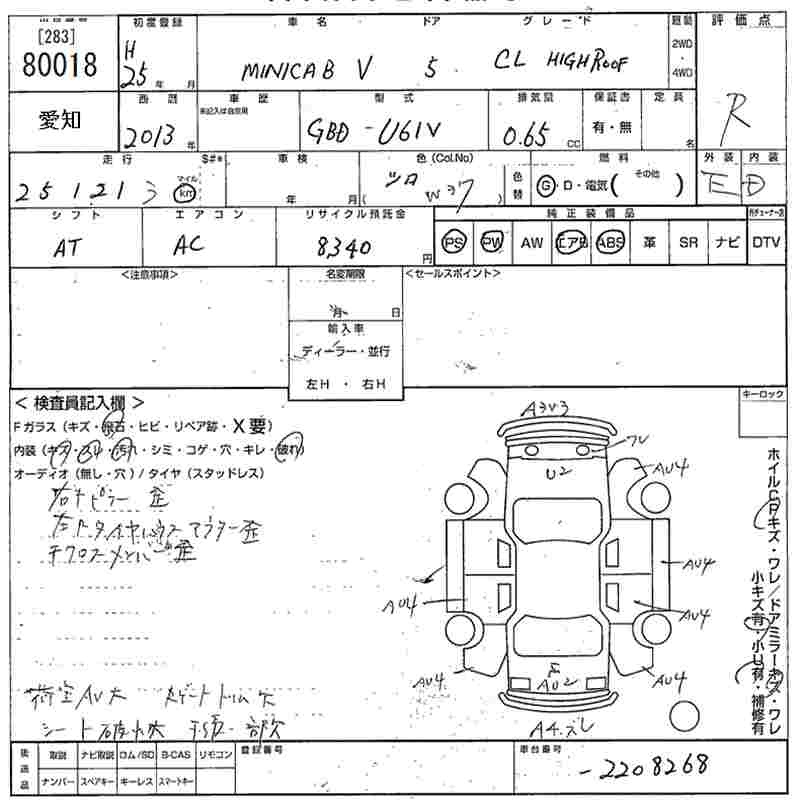 出品番号 初度登録 車名 ドア グレード 駆動 評価点
[283]
80018
H 25 年 月
MINICAB V 5 CL HIGH ROOF
2WD
・
4WD
R
愛知
西暦 車歴 型式 排気量 保証書 定員
未記入は自家用
2013 年 GBD-U61V 0.65 CC 有・無 名
走行 S#* 車検 色 (Col.No) 色替 燃料 外装 内装
251213 マイル km 年 月 ( シロ W37 ) Ⓖ・D・電気 ( その他 ) E D
シフト エアコン リサイクル預託金 純正装備品
AT AC 8,340 円 PS PW AW エアB ABS 革 SR ナビ DTV
<注意事項> 名変期限 <セールスポイント>
月 日
輸入車
ディーラー・並行
左H ・ 右H
キーロック
< 検査員記入欄 >
Fガラス (キズ・飛石・ヒビ・リペア跡・X要)
内装 (キズ・スレ・汚れ・シミ・コゲ・穴・キレ・破れ)
オーディオ (無し・穴) / タイヤ (スタッドレス)
右Fピラー 歪
左Fタイヤハウス アウター歪
Fクロスメンバー歪
A3V3
ワレ
U2
AU4
AU4
AU4
AU4
AU4
AU4
AU2
A4.ズレ
ホイルCPキズ・ワレ/ドアミラーキズ・ワレ
小キズ有・小U有・補修有
荷室AU大
シート破れ大 部欠
後送品 取説 ナビ取説 ロム/SD B-CAS リモコン
ナンバー スペアキー キーレス スマートキー
登録番号
車台番号
-2208268